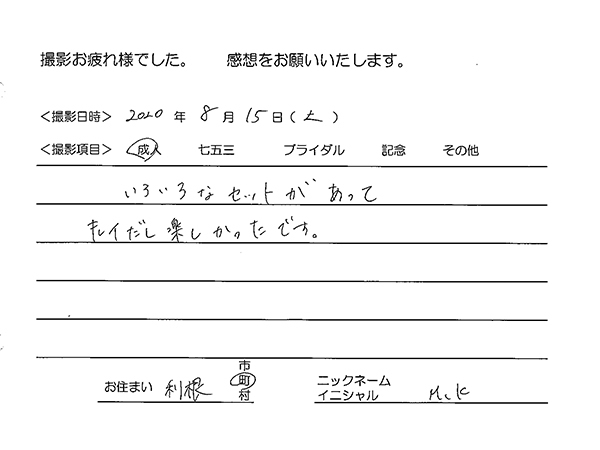 撮影お疲れ様でした。 感想をお願いいたします。
<撮影日時> 2020 年 8 月 15 日(土)
<撮影項目> 成人 七五三 ブライダル 記念 その他
いろいろなセットがあって
キレイだし楽しかったです。
お住まい 利根 市 町 村
ニックネーム
イニシャル M.K